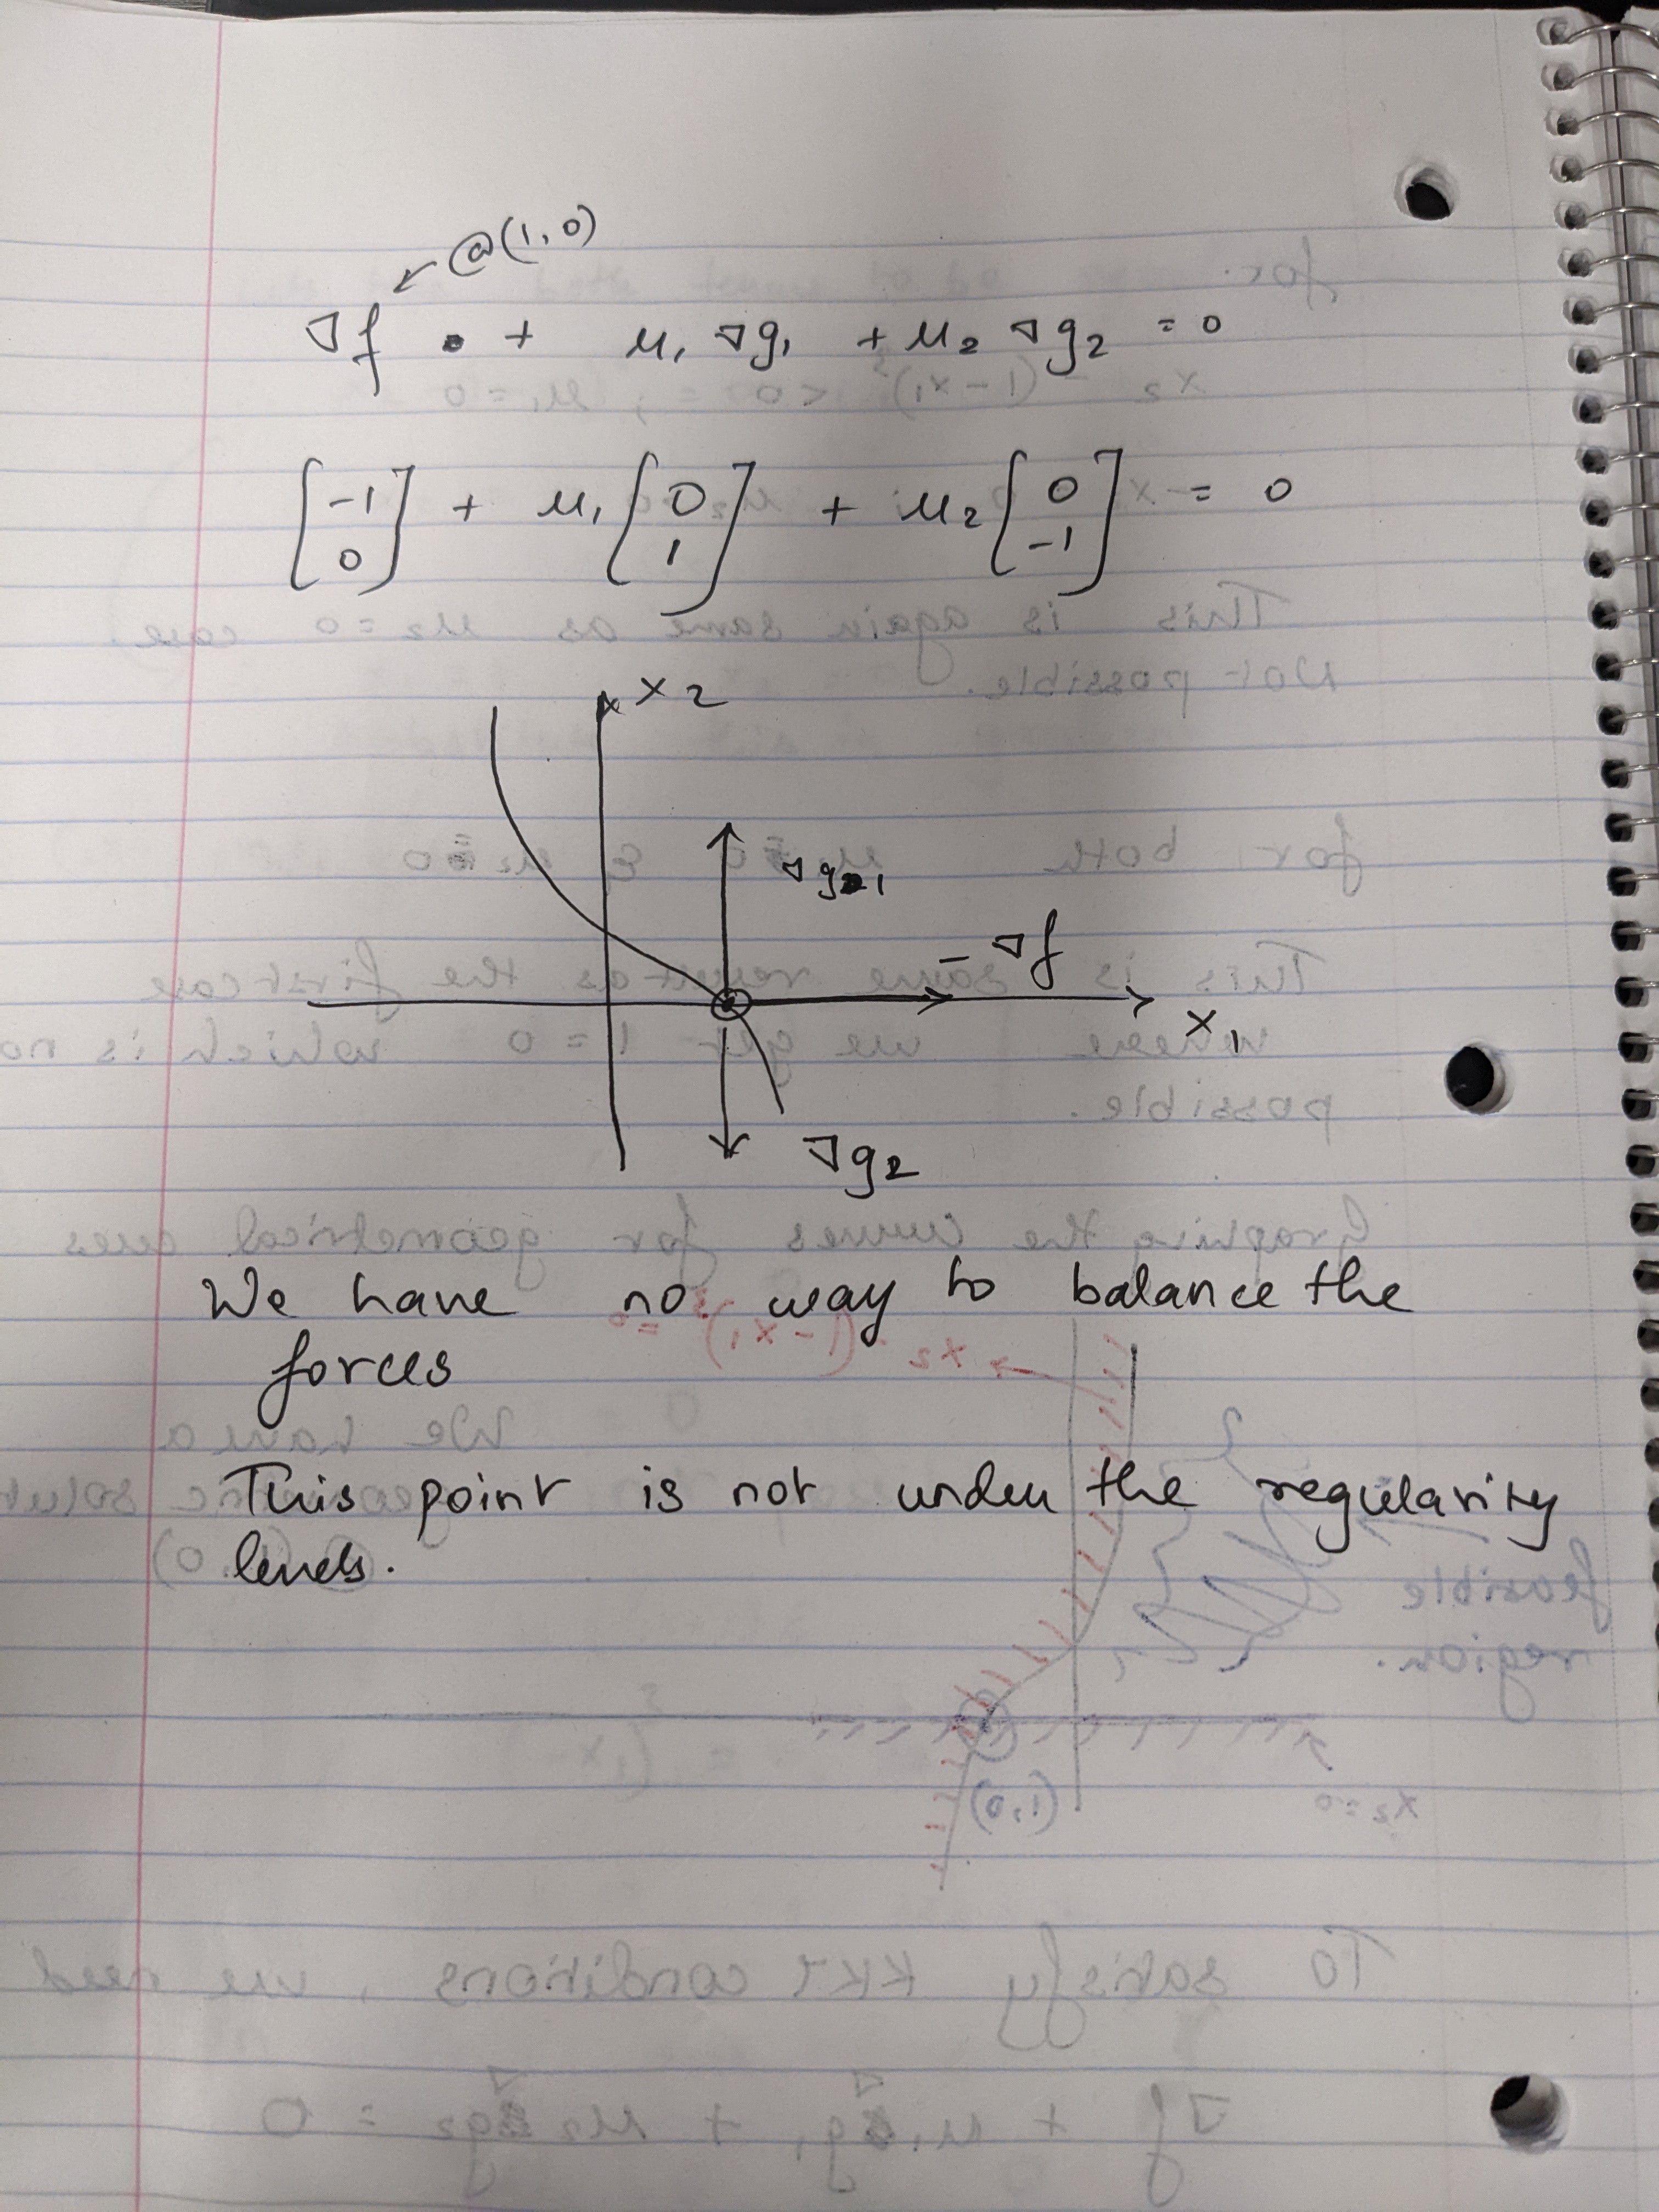 @(1,0)
∇f + μ₁ ∇g₁ + μ₂ ∇g₂ = 0
[-1 0] + μ₁ [0 1] + μ₂ [0 -1] = 0
x₂
∇g₁
-∇f
x₁
∇g₂
We have no way to balance the
forces
This point is not under the regularity
levels.